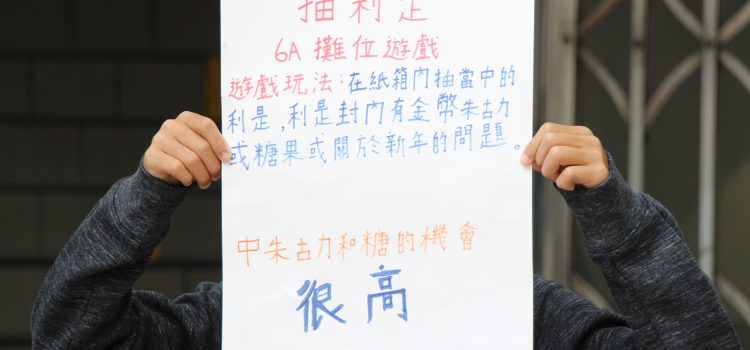 抽利是
6A 攤位遊戲
遊戲玩法:在紙箱內抽當中的
利是,利是封內有金幣朱古力
或糖果或關於新年的問題。
中朱古力和糖的機會
很高